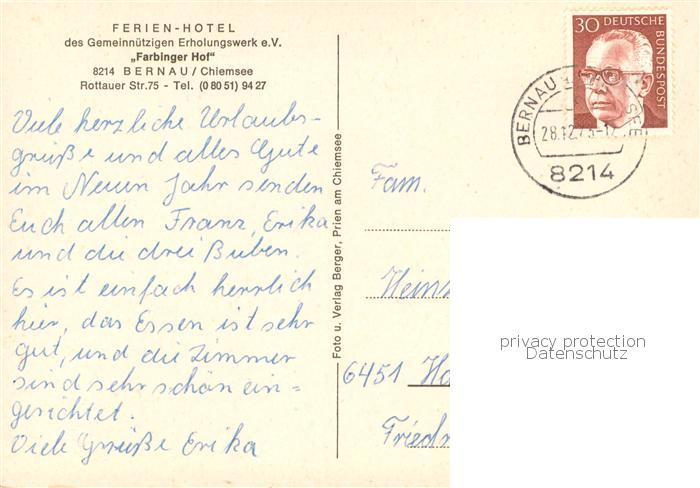 FERIEN-HOTEL
des Gemeinnützigen Erholungswerk e.V.
„Farbinger Hof"
8214 BERNAU/Chiemsee
Rottauer Str. 75 - Tel. (0 80 51) 94 27
Viele herzliche Urlaubs-
grüße und alles Gute
im Neuen Jahr senden
Euch allen Franz, Erika
und die drei Buben.
Es ist einfach herrlich
hier, das Essen ist sehr
gut, und die Zimmer
sind sehr schön ein=
gerichtet.
Viele Grüße Erika
Foto u. Verlag Berger, Prien am Chiemsee
30 DEUTSCHE
BUNDESPOST
BERNAU
SEE
28.12.
8214
Fam.
Heinz
6451
Friedr
privacy protection
Datenschutz